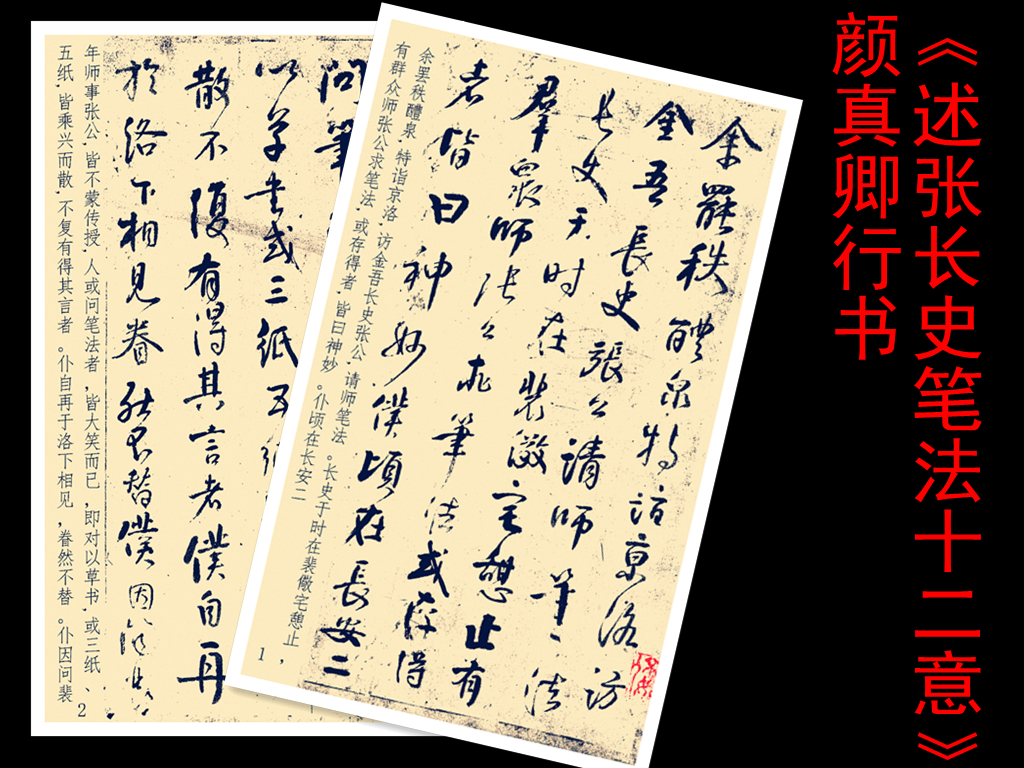 《述张长史笔法十二意》
颜真卿行书
余罷秩醴泉特詣京洛訪
金吾長史張公請師筆法
長史于時在裴儆宅憩止有
群眾師張公求筆法或存得
者皆曰神妙僕頃在長安二
余罢秩醴泉,特诣京洛,访金吾长史张公,请师笔法。长史于时在裴儆宅憩止,
有群众师张公求笔法,或存得者,皆曰神妙。仆顷在长安二
1
問筆
以草書或三紙五
散不復有得其言者僕自再
於洛下相見眷然不替僕因問裴
年师事张公,皆不蒙传授,人或问笔法者,皆大笑而已,即对以草书,或三纸、
五纸,皆乘兴而散,不复有得其言者。仆自再于洛下相见,眷然不替。仆因问裴
2